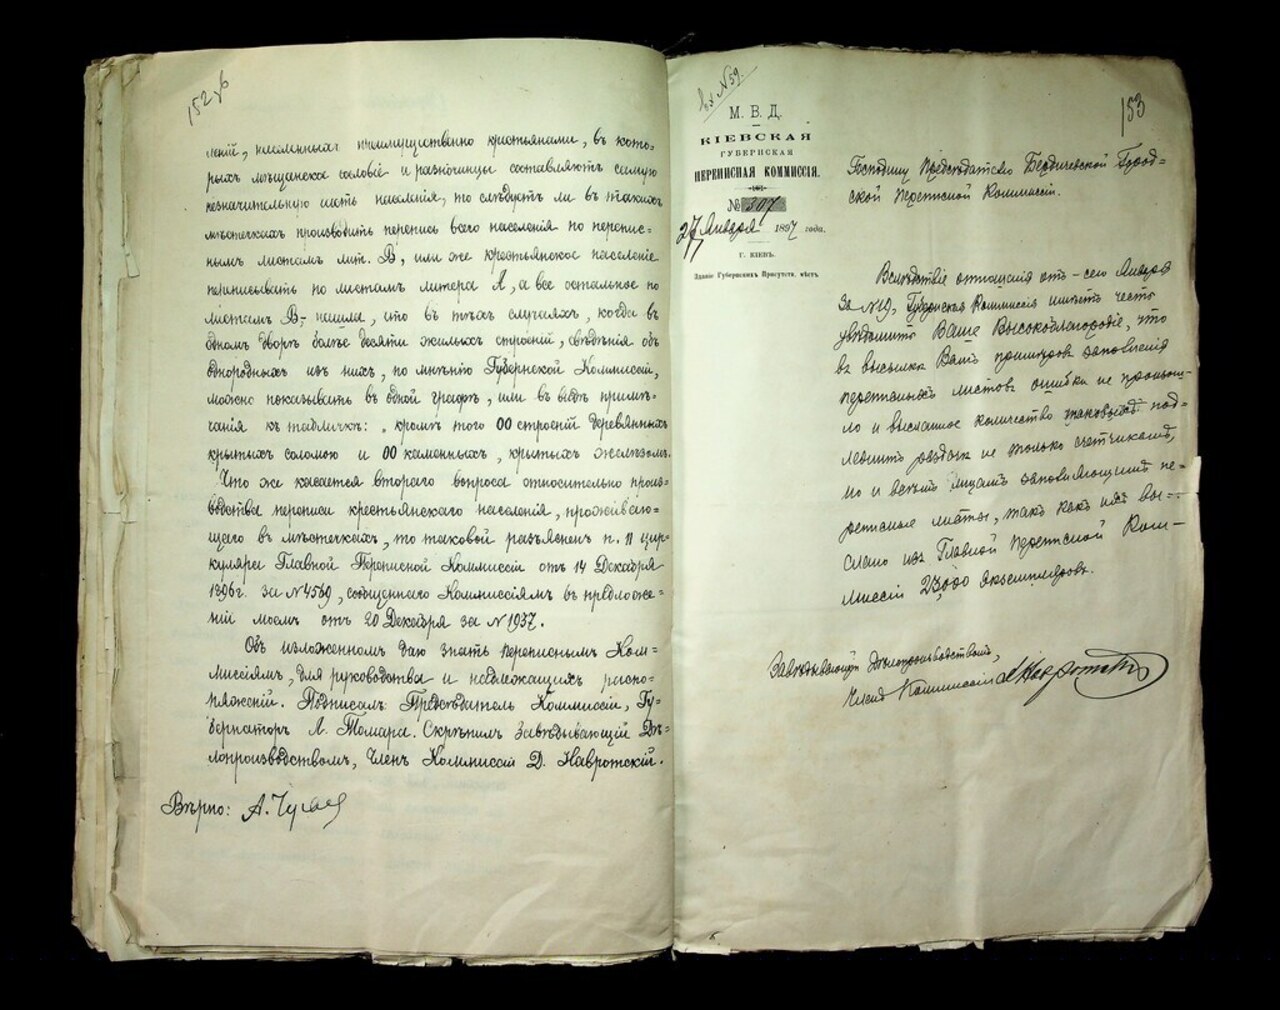 152 об
лений, населенныхъ преимущественно крестьянами, въ кото-
рыхъ мѣщанское сословіе и разночинцы составляютъ самую
незначительную часть населенія, то слѣдуетъ ли въ такихъ
мѣстечкахъ производить перепись всего населенія по перепис-
нымъ листамъ лит. В, или же крестьянское населеніе
переписывать по листамъ литера А, а все остальное по
листамъ В,- нашла, что въ тѣхъ случаяхъ, когда въ
одномъ дворѣ болѣе десяти жилыхъ строеній, свѣдѣнія объ
однородныхъ изъ нихъ, по мнѣнію Губернской Коммисіи,
можно показывать въ одной графѣ, или въ видѣ примѣ-
чанія къ табличкѣ: „кромѣ того 00 строеній деревянныхъ
крытыхъ соломою и 00 каменныхъ, крытыхъ желѣзомъ.
Что же касается втораго вопроса относительно произ-
водства переписи крестьянскаго населенія, проживаю-
щаго въ мѣстечкахъ, то таковой разъясненъ п. 11 цир-
куляра Главной Переписной Коммисіи отъ 14 Декабря
1896г. за №4569, сообщеннаго Коммисіямъ въ предложе-
ніи моемъ отъ 20 Декабря за №1937.
Объ изложенномъ даю знать переписнымъ Ком-
мисіямъ, для руководства и надлежащихъ распо-
ряженій. Подписалъ: Предсѣдатель Коммисіи, Гу-
бернаторъ Л. Томара. Скрѣпилъ Завѣдывающій Дѣ-
лопроизводствомъ, Членъ Коммисіи Д. Навротскій.
Вѣрно: А.
вх №59.
153
М. В. Д.
КІЕВСКАЯ
ГУБЕРНСКАЯ
ПЕРЕПИСНАЯ КОММИССІЯ.
№ 397
27 Января 1897 года.
Г. КІЕВЪ.
Зданіе Губернскихъ Присутств. мѣстъ
Господину Предсѣдателю Бердичевской Город-
ской Переписной Коммисіи.
Вслѣдствіе отношенія отъ - сего Января
за №19, Губернская Коммисія имѣетъ честь
увѣдомить Ваше Высокоблагородіе, что
въ высылкѣ Вамъ примѣровъ заполненія
переписныхъ листовъ ошибки не произош-
ло и высланное количество таковыхъ под-
лежитъ раздачѣ не только счетчикамъ,
но и всѣмъ лицамъ заполняющимъ пе-
реписные листы, такъ какъ ихъ вы-
слано изъ Главной Переписной Ком-
мисіи 23,000 экземпляровъ.
Завѣдывающій Дѣлопроизводствомъ,
Членъ Коммисіи Д Навротскій